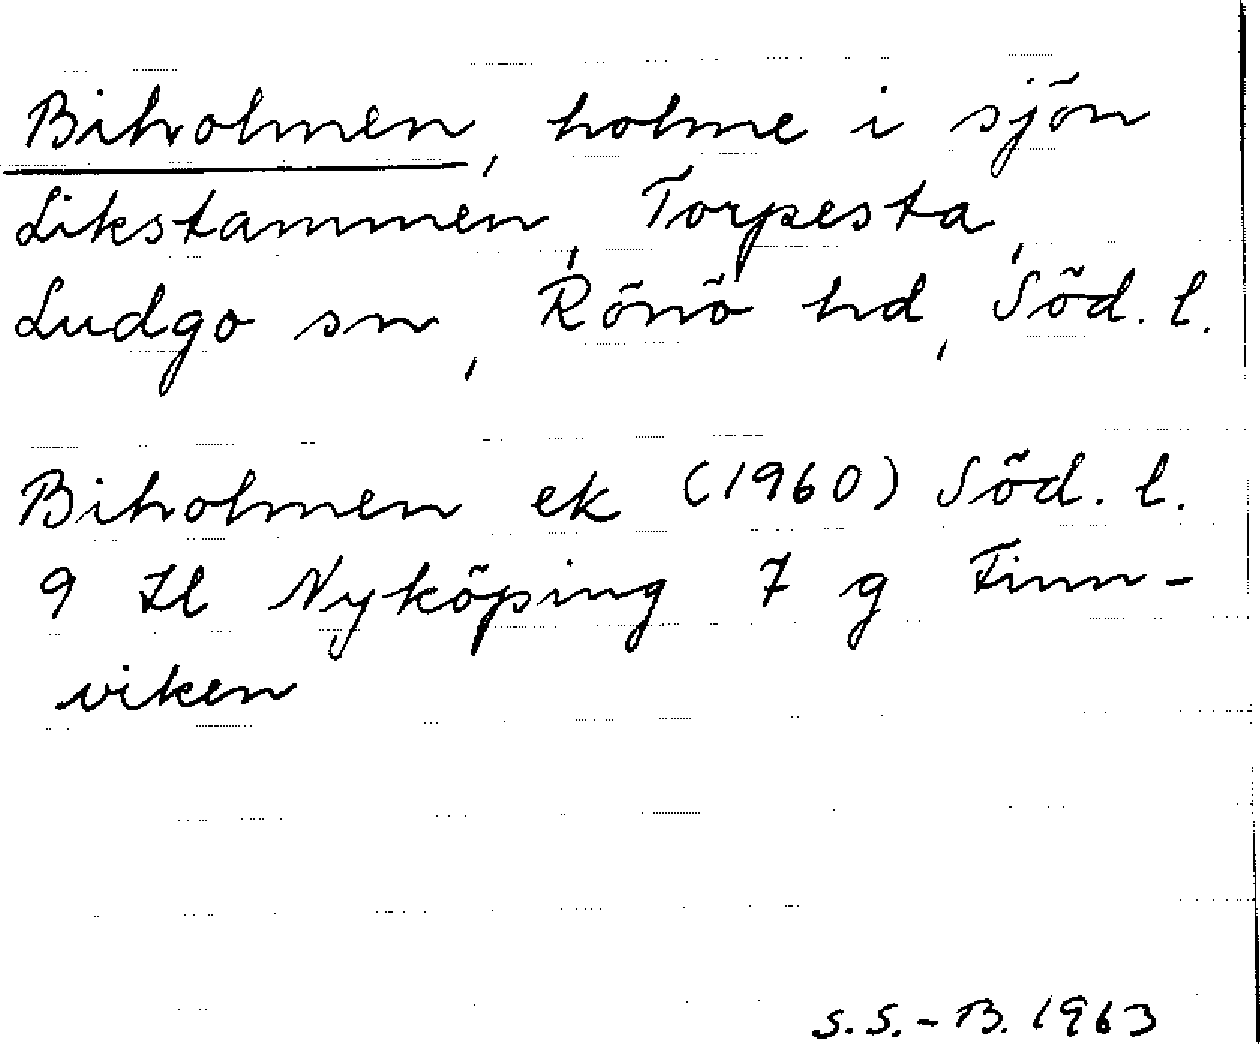 Biholmen, holme i sjön
Likstammen, Torpesta,
Ludgo sn, Rönö hd, Söd. l.
Biholmen ek (1960) Söd. l.
9 Il Nyköping 7 g Finn-
viken
S.S.-B. 1963